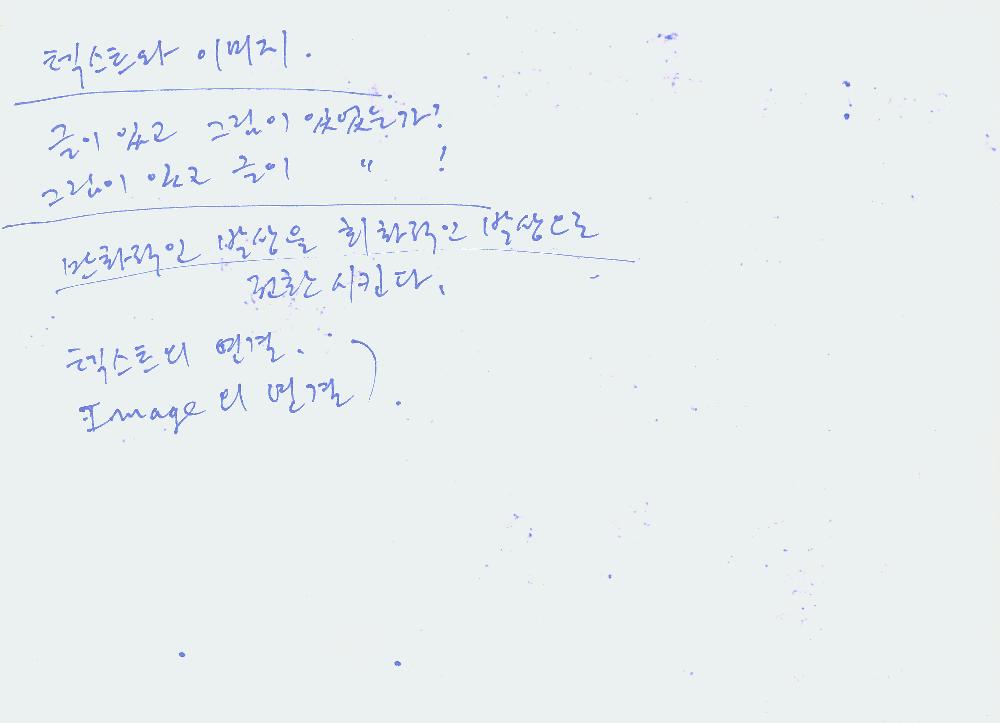 텍스트와 이미지.
글이 있고 그림이 있었는가?
그림이 있고 글이 〃 !
만화적인 발상을 회화적인 발상으로
전환시킨다.
텍스트의 연결.
Image의 연결.